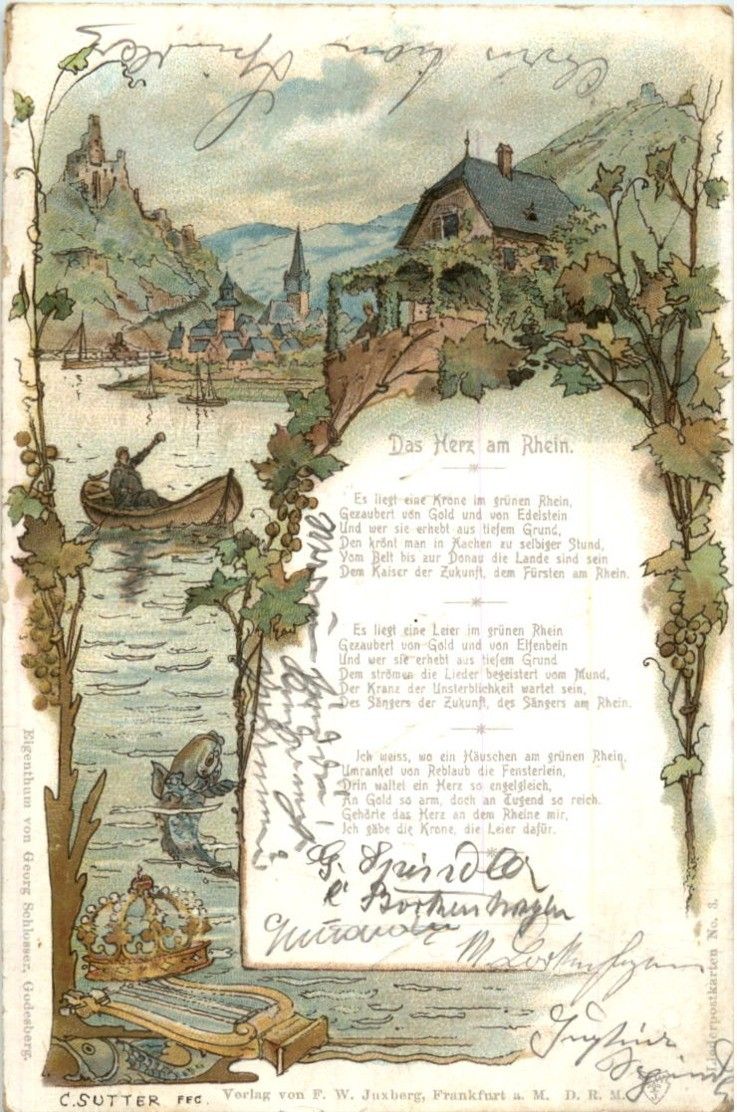 Das Herz am Rhein.
Es liegt eine Krone im grünen Rhein,
Gezaubert von Gold und von Edelstein
Und wer sie erhebt aus tiefem Grund,
Den krönt man in Aachen zu selbiger Stund,
Vom Belt bis zur Donau die Lande sind sein
Dem Kaiser der Zukunft, dem Fürsten am Rhein.
Es liegt eine Leier im grünen Rhein
Gezaubert von Gold und von Elfenbein
Und wer sie erhebt aus tiefem Grund
Dem strömen die Lieder begeistert vom Mund,
Der Kranz der Unsterblichkeit wartet sein,
Des Sängers der Zukunft, des Sängers am Rhein.
Ich weiss, wo ein Häuschen am grünen Rhein,
Umranket von Reblaub die Fensterlein,
Drin waltet ein Herz so engelgleich,
An Gold so arm, doch an Tugend so reich.
Gehörte das Herz am Rheine mir,
Ich gäbe die Krone, die Leier dafür.
G. Spindler
Eigenthum von Georg Schlosser, Godesberg.
Liederpostkarten No. 3.
C. SUTTER FEC.
Verlag von F. W. Juxberg, Frankfurt a. M. D. R. M.